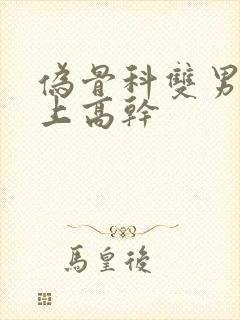 偽骨科雙男
上高幹
馬皇後